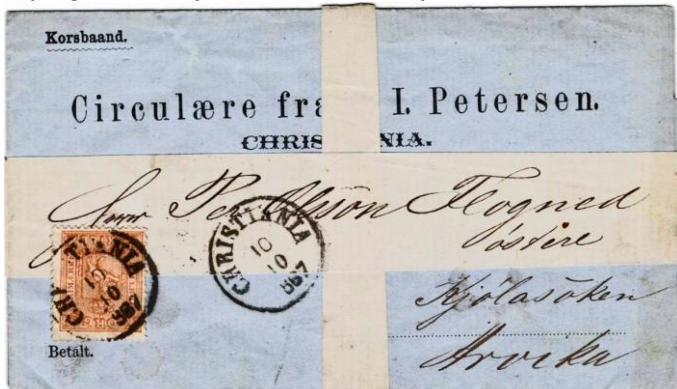 Korsbaand.
Circulære fra I. Petersen.
CHRIS NIA.
Herr Per Olsson Flogned
östere
Kjölasöken
Arvika
CHRISTIANIA
10
10
867
CHRISTIANIA
10
10
867
Betalt.